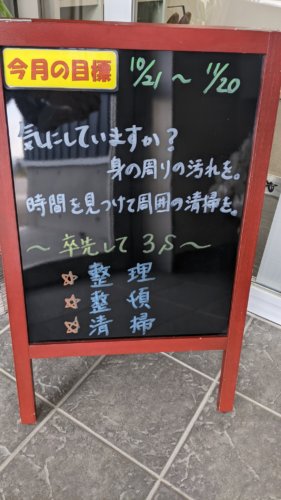 今月の目標
10/21 ~ 11/20
気にしていますか?
身の周りの汚れを。
時間を見つけて周囲の清掃を。
~ 卒先して 3S ~
☆ 整理
☆ 整頓
☆ 清掃